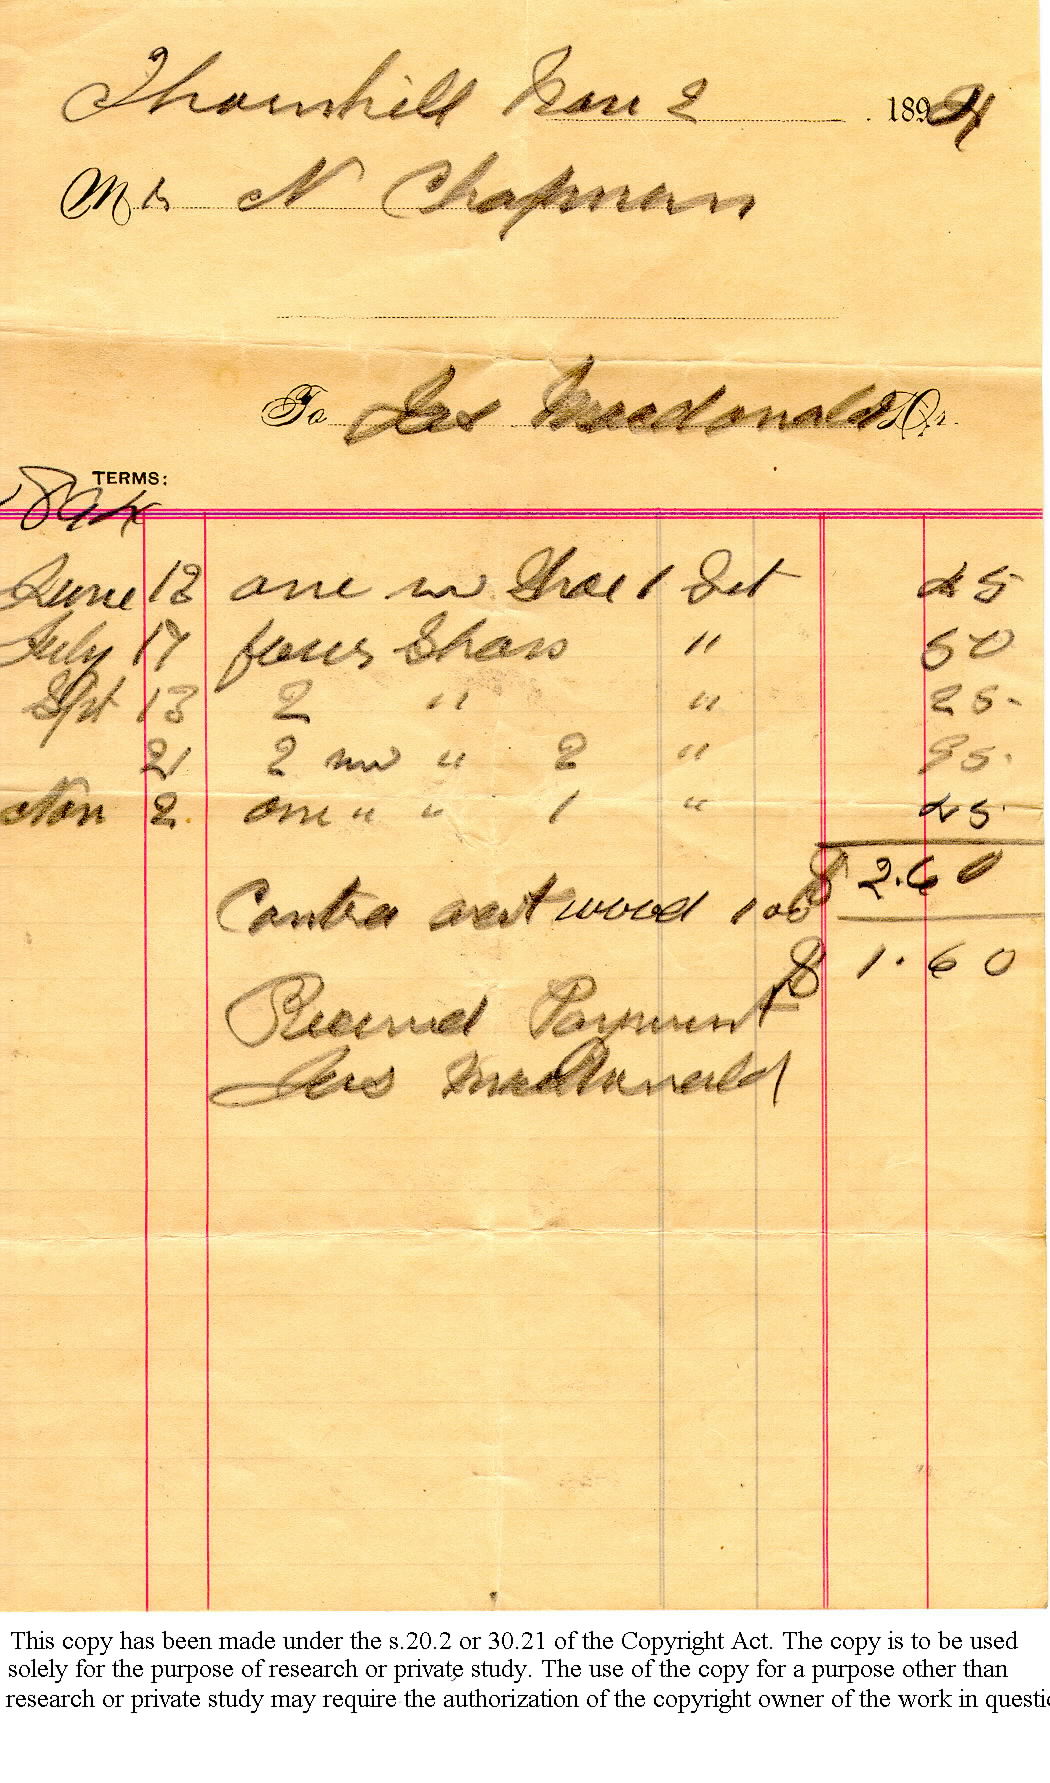 Thornhill Nov 2 1894
Mr N Chapman
To Jas Macdonald Dr.
TERMS:
1894
June 12 one nw Shoe 1 Set 25
July 17 four Shoes " 50
Sept 13 2 " " 25.
21 2 nw " 2 " 95.
Nov 2 one " " 1 " 25.
$ 2.60
Contra wood 1 00
$ 1.60
Received Payment
Jas MacDonald
This copy has been made under the s.20.2 or 30.21 of the Copyright Act. The copy is to be used
solely for the purpose of research or private study. The use of the copy for a purpose other than
research or private study may require the authorization of the copyright owner of the work in questi